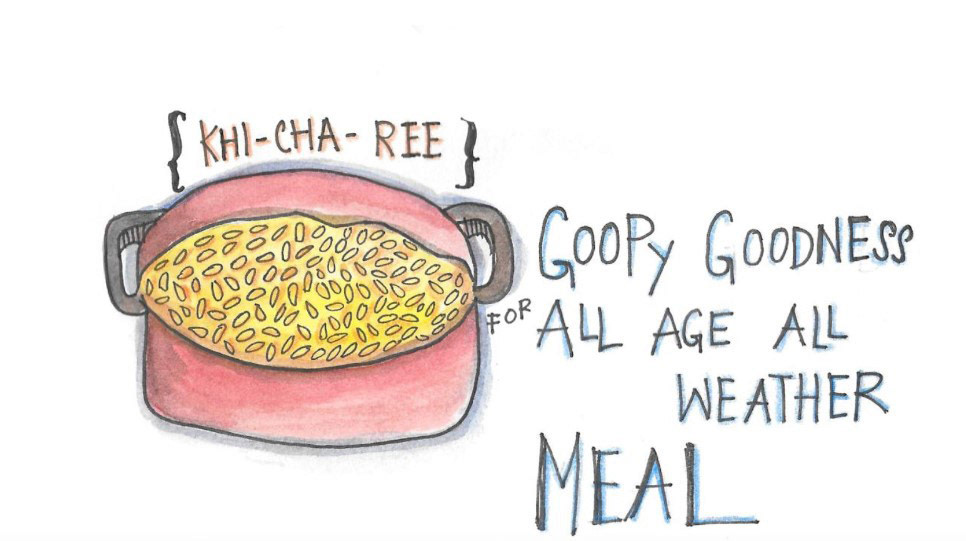 { KHI-CHA-REE }
GOOPY GOODNESS
FOR ALL AGE ALL
WEATHER
MEAL